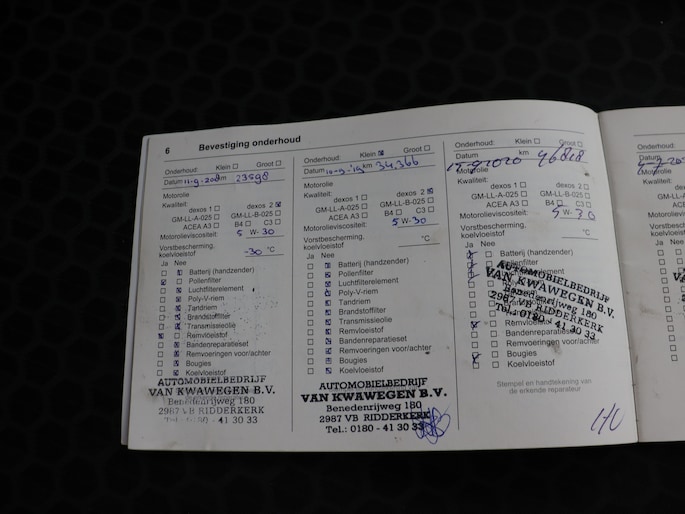 6 Bevestiging onderhoud
Onderhoud: Klein Groot
Datum 11-9-2018 km 23598
Motorolie
Kwaliteit:
dexos 1 dexos 2
GM-LL-A-025 GM-LL-B-025
ACEA A3 B4 C3
Motorolieviscositeit: 5 W-30
Vorstbescherming,
koelvloeistof -30 °C
Ja Nee
Batterij (handzender)
Pollenfilter
Luchtfilterelement
Poly-V-riem
Tandriem
Brandstoffilter
Transmissieolie
Remvloeistof
Bandenreparatieset
Remvoeringen voor/achter
Bougies
Koelvloeistof
AUTOMOBIELBEDRIJF
VAN KWAWEGEN B.V.
Benedenrijweg 180
2987 VB RIDDERKERK
Tel.: 0180 - 41 30 33
Onderhoud: Klein Groot
Datum 10-9-'19 km 34.366
Motorolie
Kwaliteit:
dexos 1 dexos 2
GM-LL-A-025 GM-LL-B-025
ACEA A3 B4 C3
Motorolieviscositeit: 5 W-30
Vorstbescherming,
koelvloeistof °C
Ja Nee
Batterij (handzender)
Pollenfilter
Luchtfilterelement
Poly-V-riem
Tandriem
Brandstoffilter
Transmissieolie
Remvloeistof
Bandenreparatieset
Remvoeringen voor/achter
Bougies
Koelvloeistof
AUTOMOBIELBEDRIJF
VAN KWAWEGEN B.V.
Benedenrijweg 180
2987 VB RIDDERKERK
Tel.: 0180 - 41 30 33
Onderhoud: Klein Groot
Datum 15-9-2020 km 46818
Motorolie
Kwaliteit:
dexos 1 dexos 2
GM-LL-A-025 GM-LL-B-025
ACEA A3 B4 C3
Motorolieviscositeit: 5 W-30
Vorstbescherming,
koelvloeistof °C
Ja Nee
Batterij (handzender)
Pollenfilter
AUTOMOBIELBEDRIJF
VAN KWAWEGEN B.V.
Benedenrijweg 180
2987 VB RIDDERKERK
Tel.: 0180 - 41 30 33
Remvloeistof
Bandenreparatieset
Bougies
Koelvloeistof
Stempel en handtekening van
de erkende reparateur
Onderhoud:
Datum
Motorolie
Kwaliteit:
Motorolieviscositeit
Vorstbescherming,
koelvloeistof
Ja Nee